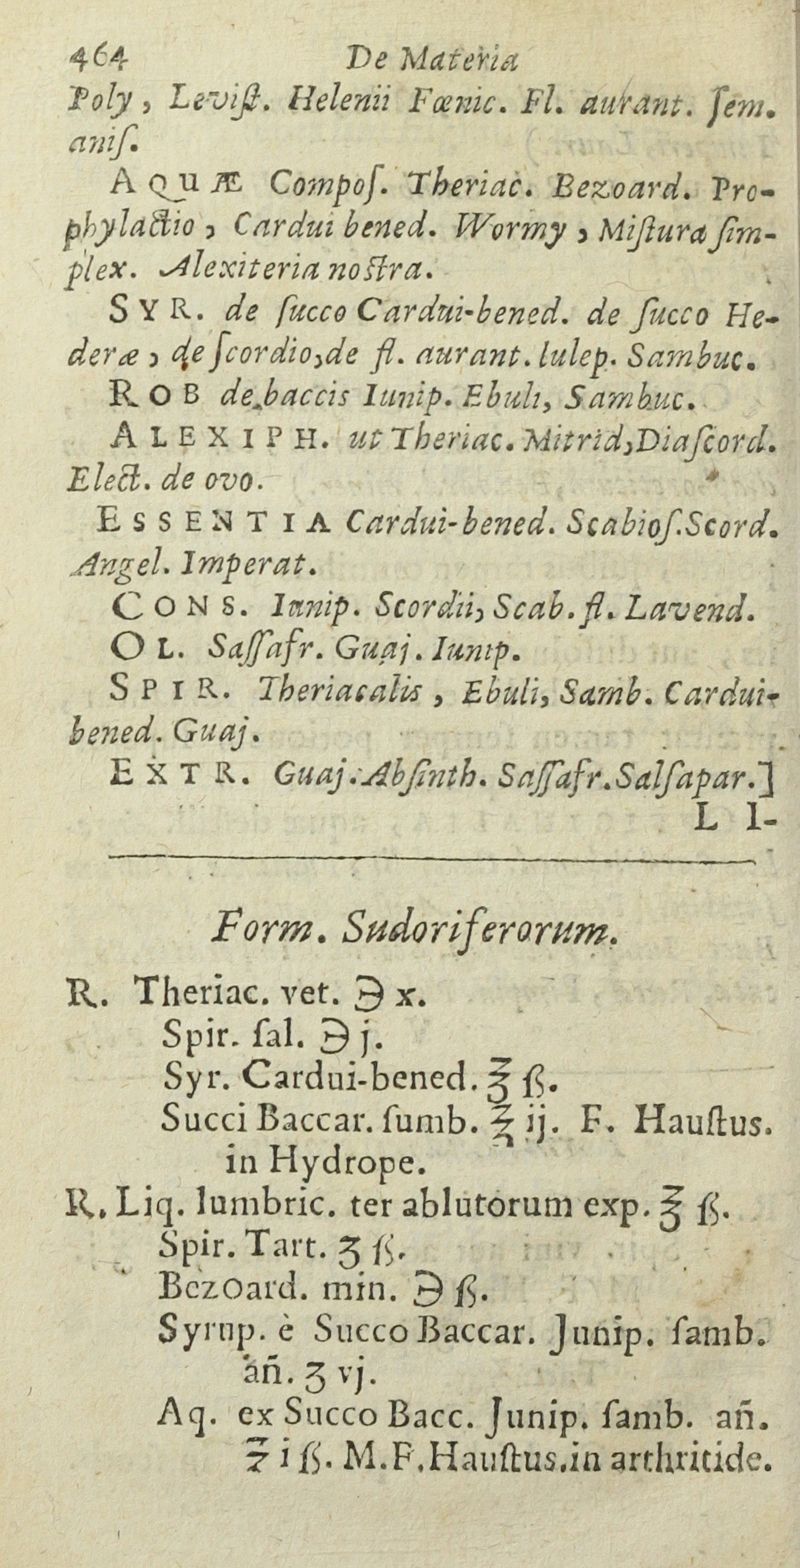 464 De Materia
Poly, Leviſt. Helenii Fœnic. Fl. aurant. ſem.
aniſ.
AQUÆ Compoſ. Theriac. Bezoard. Pro-
phylactio, Cardui bened. Wormy, Miſtura ſim-
plex. Alexiteria noſtra.
SYR. de ſucco Cardui-bened. de ſucco He-
deræ, de ſcordio, de fl. aurant. Iulep. Sambuc.
ROB de baccis Iunip. Ebuli, Sambuc.
ALEXIPH. ut Theriac. Mitrid, Diaſcord.
Elect. de ovo.
ESSENTIA Cardui-bened. Scabioſ. Scord.
Angel. Imperat.
CONS. Iunip. Scordii, Scab. fl. Lavend.
OL. Saſſafr. Guaj. Iunip.
SPIR. Theriacalis, Ebuli, Samb. Cardui-
bened. Guaj.
EXTR. Guaj. Abſinth. Saſſafr. Salſapar.]
L l-
Form. Sudoriferorum.
R. Theriac. vet. ℈ x.
Spir. ſal. ℈ j.
Syr. Cardui-bened. ℥ ß.
Succi Baccar. ſumb. ℥ ij. F. Hauſtus.
in Hydrope.
R. Liq. lumbric. ter ablutorum exp. ℥ ß.
Spir. Tart. ʒ ß.
Bezoard. min. ℈ ß.
Syrup. è Succo Baccar. Junip. ſamb.
añ. ʒ vj.
Aq. ex Succo Bacc. Junip. ſamb. añ.
℥ i ß. M.F. Hauſtus. in arthritide.